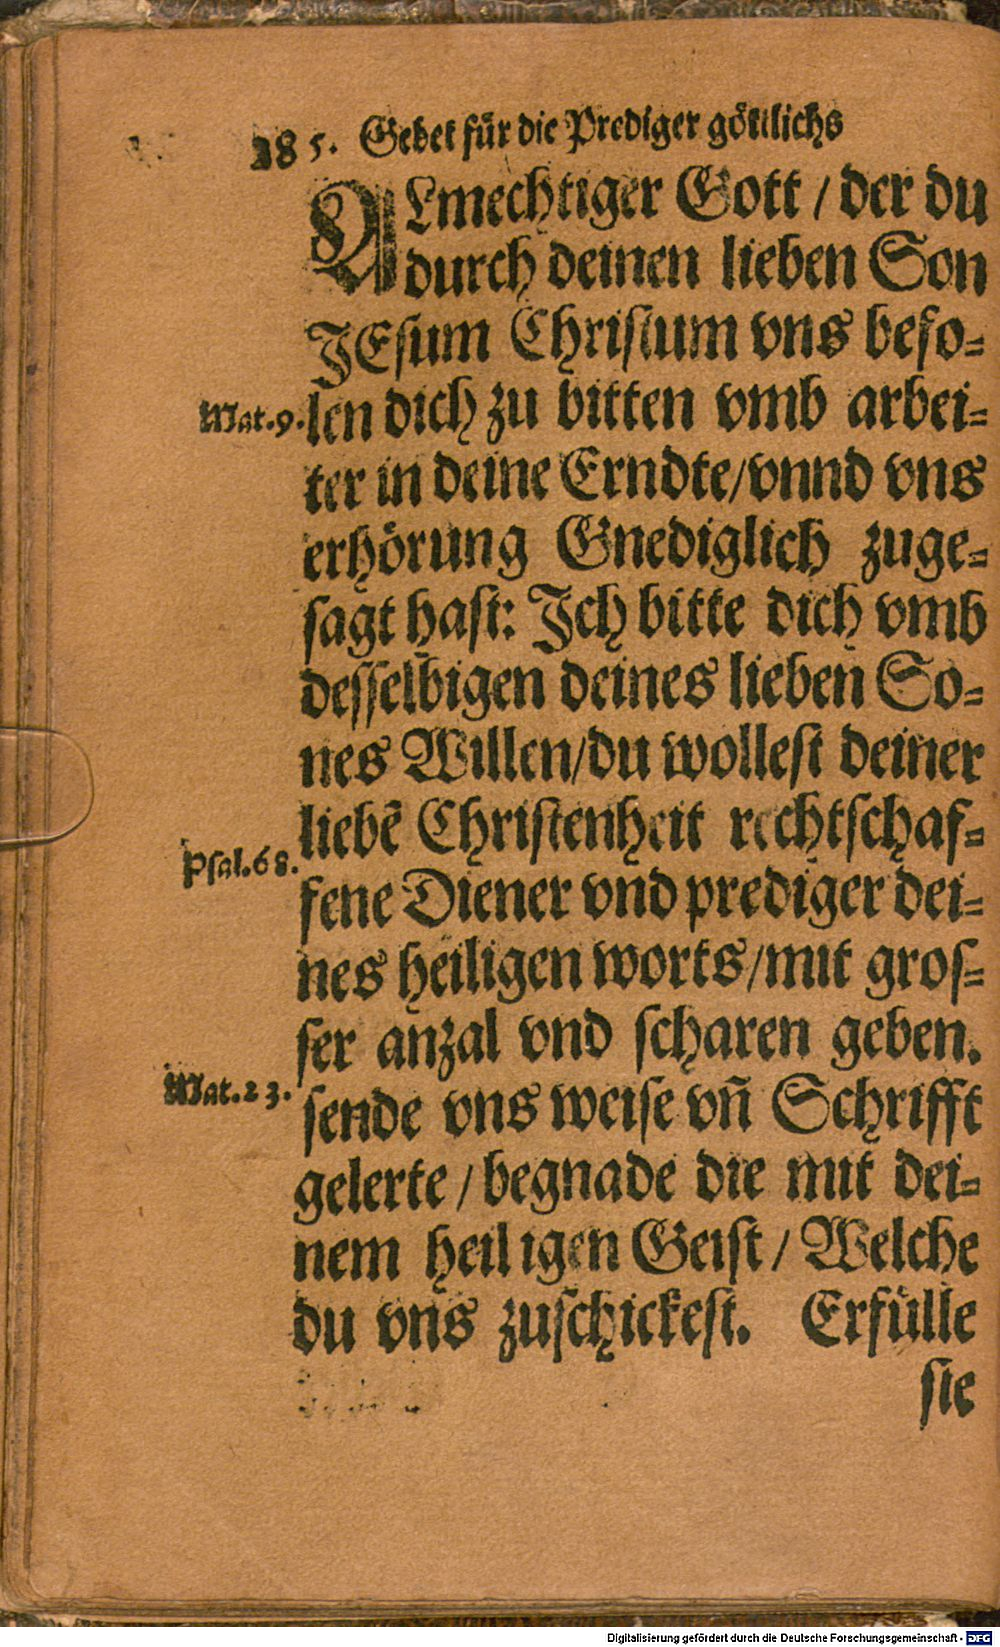 285. Gebet für die Prediger göttlichs
ALmechtiger Gott / der du
durch deinen lieben Son
JEsum Christum vns befo-
Mat.9. len dich zu bitten vmb arbei-
ter in deine Erndte/vnnd vns
erhörung Gnediglich zuge-
sagt hast: Jch bitte dich vmb
desselbigen deines lieben So-
nes Willen/du wollest deiner
liebē Christenheit rechtschaf-
Psal.68.
fene Diener vnd prediger dei-
nes heiligen worts/mit gros-
ser anzal vnd scharen geben.
Mat.23. sende vns weise vn̄ Schrifft
gelerte / begnade die mit dei-
nem heiligen Geist / Welche
du vns zuschickest. Erfülle
sie
Digitalisierung gefördert durch die Deutsche Forschungsgemeinschaft - DFG